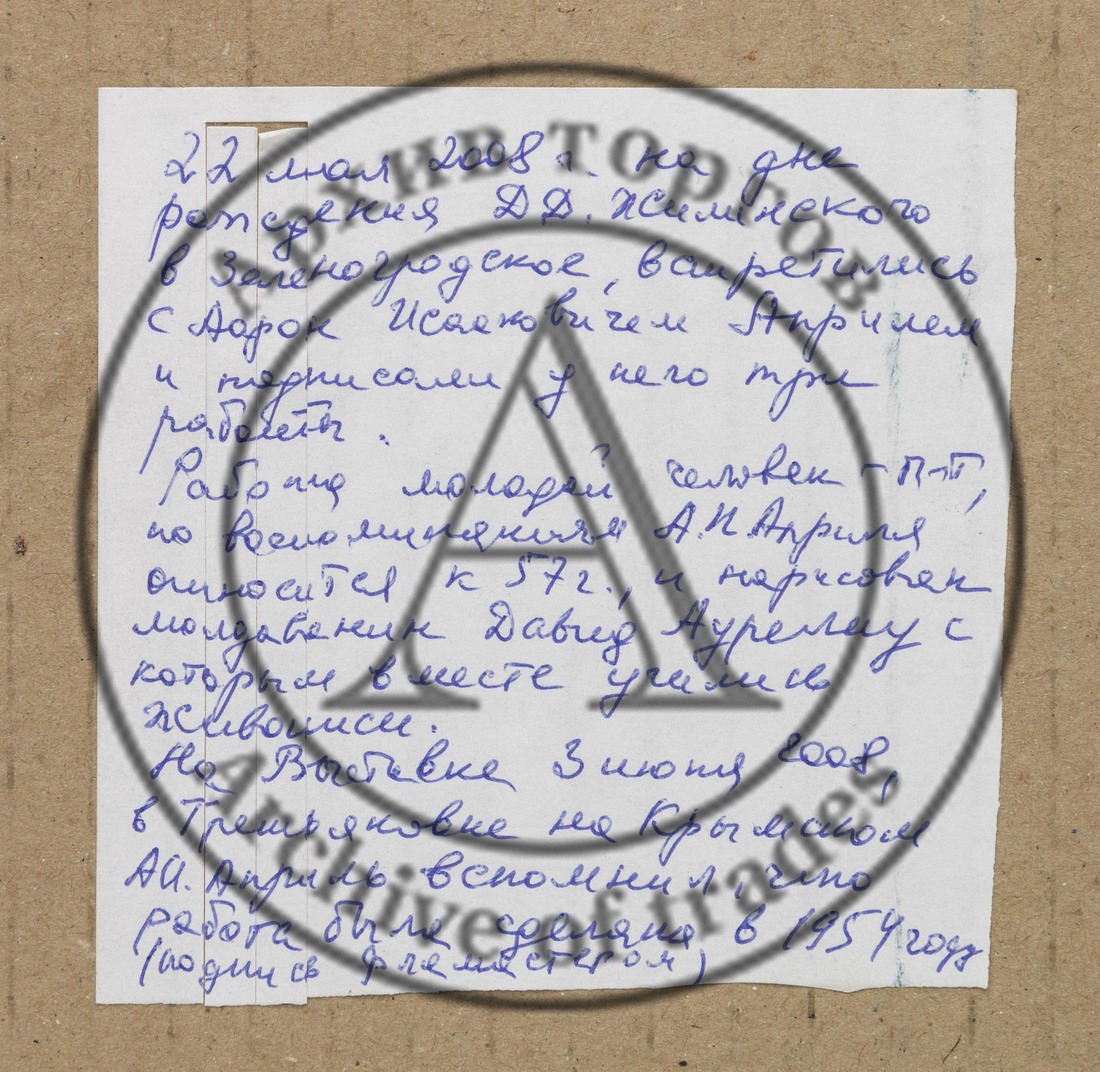 Архив торгов
22 мая 2008 г. на дне
рождения Д.Д. Жилинского
в Зеленоградское, встретились
с Аарон Исааковичем Априлем
и подписали у него три
работы.
Работа молодой человек - П-Т,
по воспоминаниям А.И. Априля
относится к 57 г., и нарисован
молдаванин Давид Аурелиу с
которым вместе учились
живописи.
На Выставке 3 июня 2008,
в Третьяковке на Крымском
А.И. Априль вспомнил, что
работа была сделана в 1954 году
(подпись фламастером)
Archive of trades